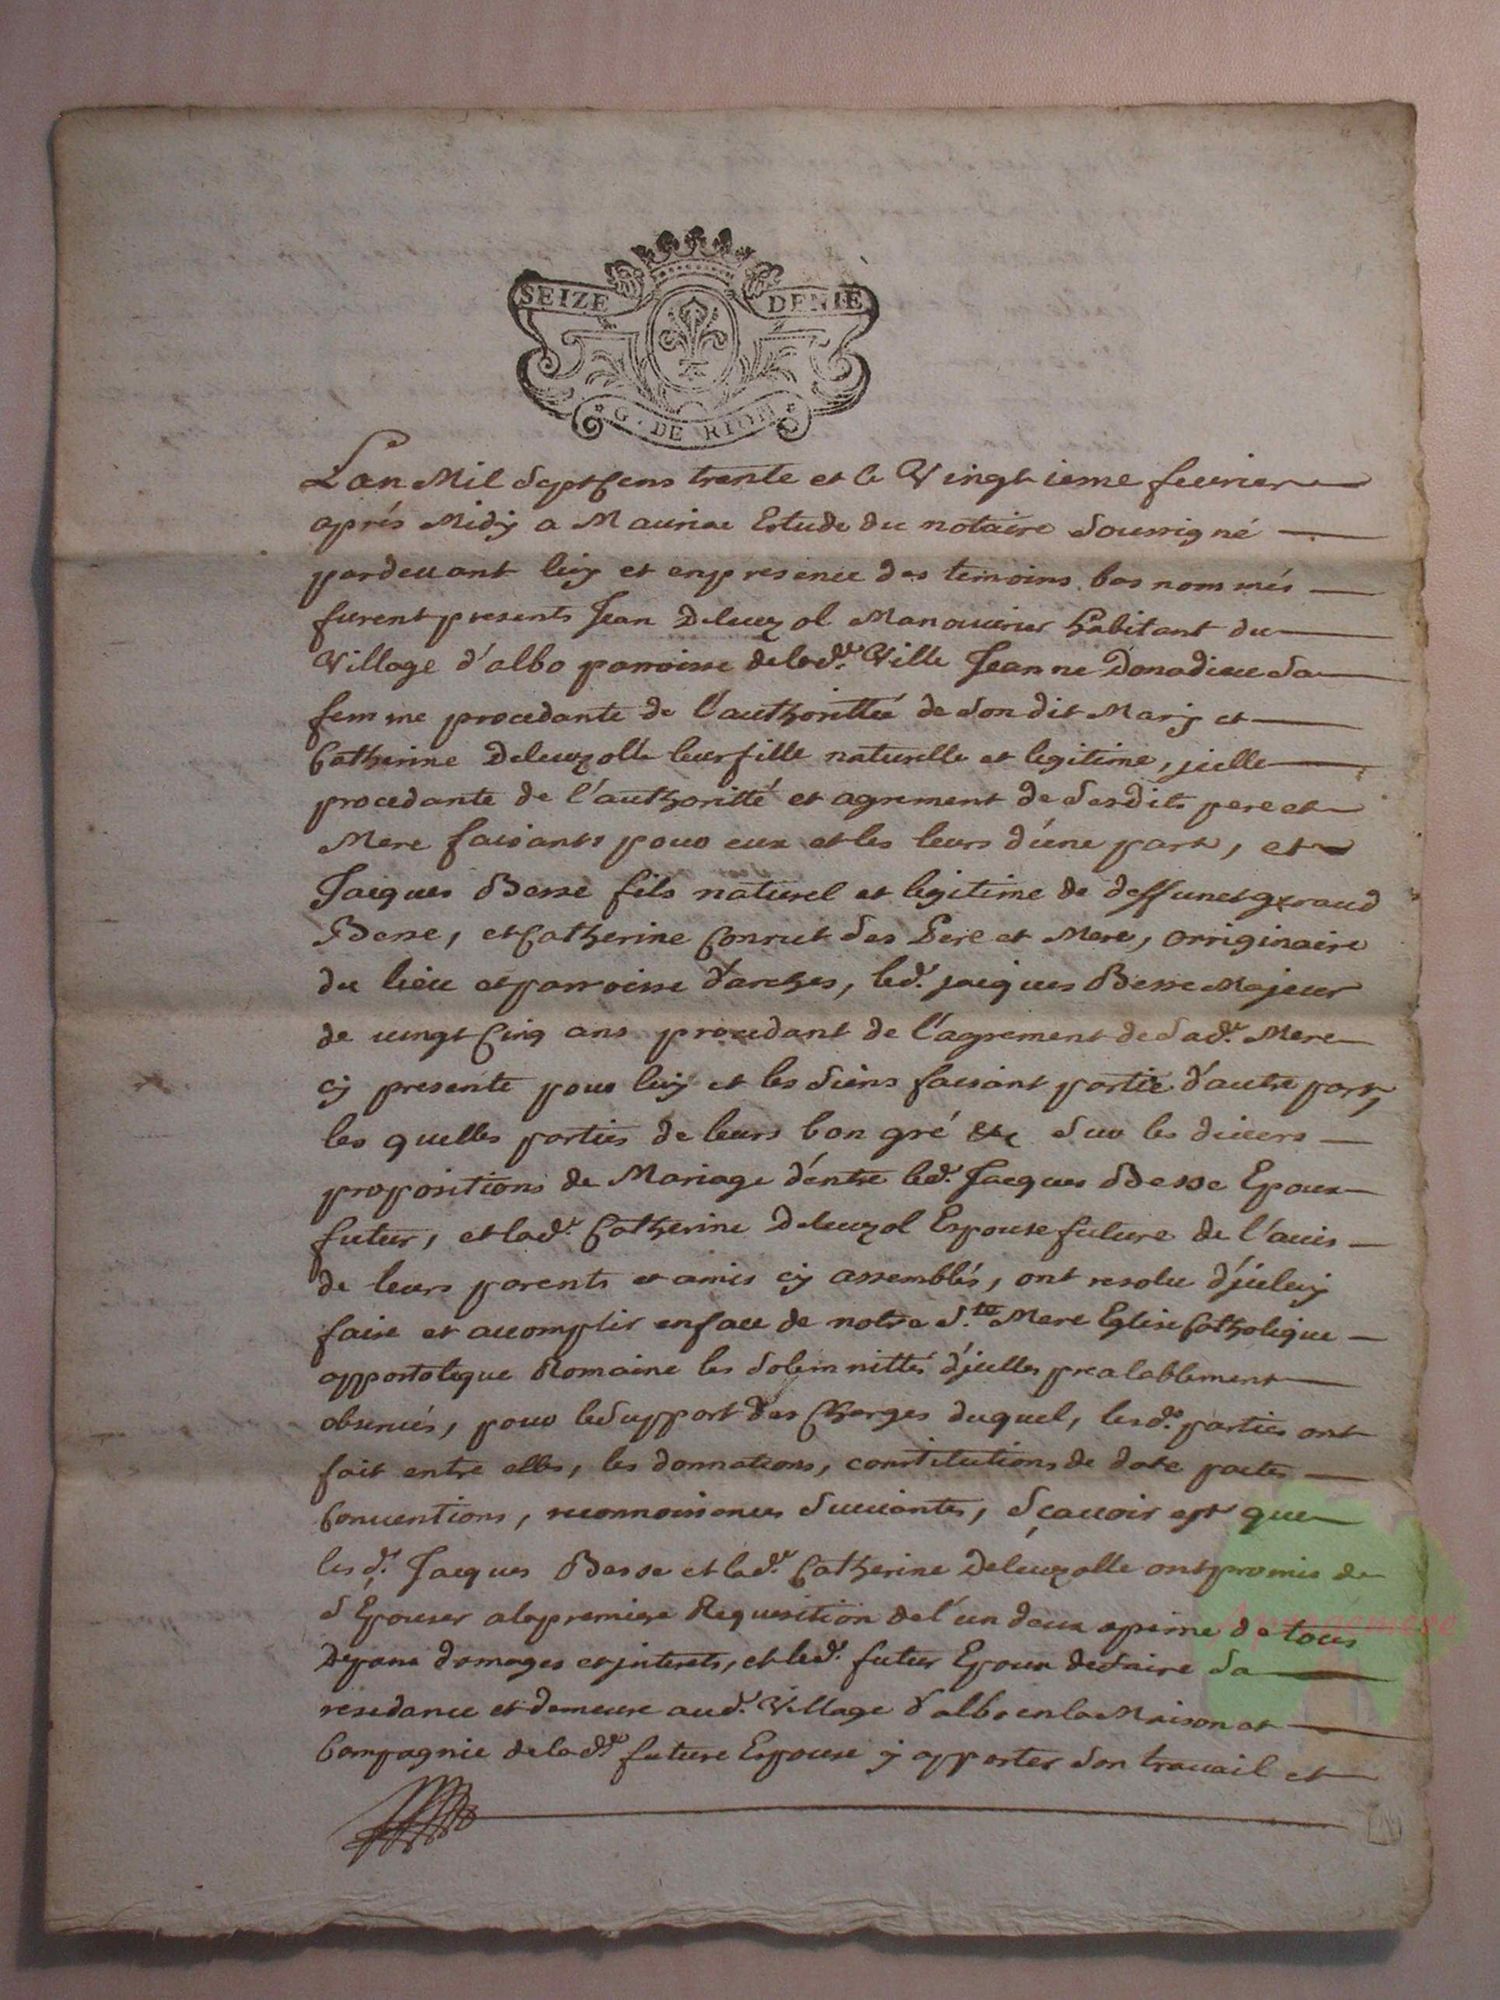 SEIZE DENIE
G. DE RIOM
Lan Mil Sept Cens trante et le Vingtieme feurier
aprés Midy a Mauriac Estude du notaire Soussigné
pardeuant luy et enpresence des temoins bas nommés
furent presents Jean Deleuzol Manouurier habitant du
Village d'albo parroisse delad.e Ville Jeanne Donadieu Sa
femme procedante de l'authorittée de Son dit Mary et
Catherine Deleuzolle leur fille naturelle et legitime, jcelle
procedante de l'authoritté et agrement de Sesdits pere et
Mere faisants pour eux et les leurs d'une part, et
Jacques Besse fils naturel et legitime de deffunct geraud
Besse, et Catherine Conrut Ses Pere et Mere, orriginaire
du lieu et parroisse d'arches, led. jacques Besse Majeur
de uingt Cinq ans procedant de l'agrement de Sad.e Mere
cy presente pour luy et les Siens faisant partie d'autre part,
les quelles parties de leurs bon gré &c Sur les diuers
propositions de Mariage d'entre led. Jacques Besse Epoux
futur, et lad.e Catherine Deleuzol Espouse future de l'auis
de leurs parents et amis cy assemblés, ont resolu d'jceluy
faire et accomplir enface de notre S.te Mere Eglise Catholique
appostolique Romaine les Solemnittés d'jcelles prealablement
obserués, pour le Support des Charges duquel, lesd.s parties ont
fait entre elles, les donnations, constitutions de dote pactes
Conuentions, reconnoissances Suiuantes, Sçauoir est que
les d. Jacques Besse et lad.e Catherine Deleuzolle ont promis de
S'Epouser alapremiere Requisition de l'un deux apeine de tous
Depans domages et jnterets, et led. futur Epoux de faire Sa
residance et demeure aud. Village d'albo en la Maison et
Compagnie delad.e future Espouse y apporter Son trauail et